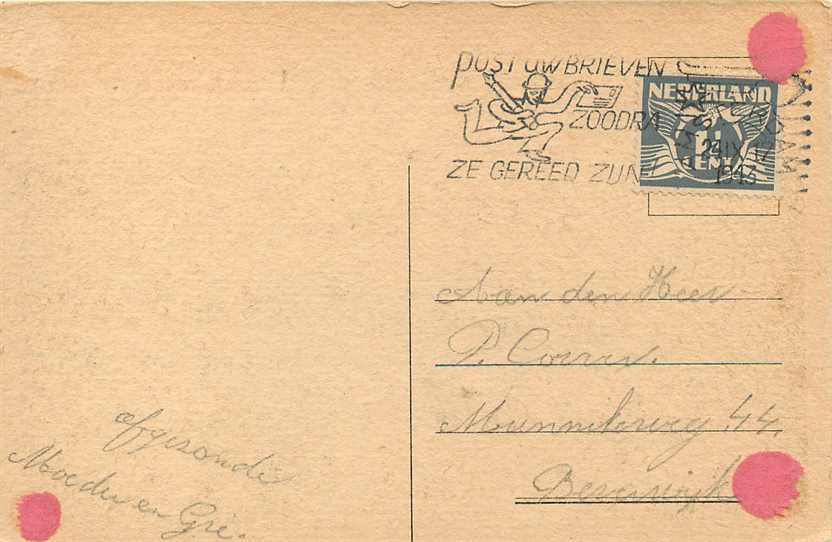 POST UW BRIEVEN
ZOODRA
ZE GEREED ZIJN
NEDERLAND
1½
1943
Aan den Heer
P.
Munnikweg 44.
Beverwijk
afgezonden
Moeder en Gré.